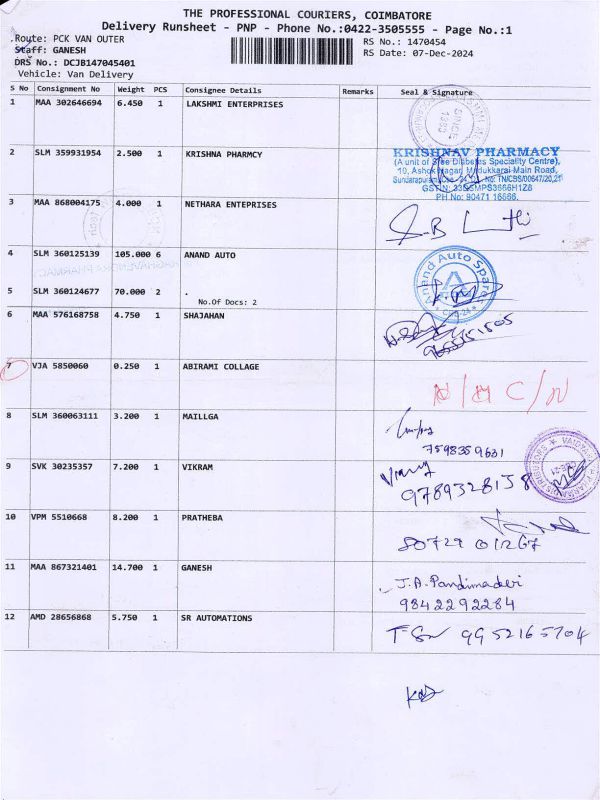 THE PROFESSIONAL COURIERS, COIMBATORE
Delivery Runsheet - PNP - Phone No.:0422-3505555 - Page No.:1
Route: PCK VAN OUTER
RS No.: 1470454
Staff: GANESH
RS Date: 07-Dec-2024
DRS No.: DCJB147045401
Vehicle: Van Delivery
S No Consignment No Weight PCS Consignee Details Remarks Seal & Signature
1 MAA 302646694 6.450 1 LAKSHMI ENTERPRISES
2 SLM 359931954 2.500 1 KRISHNA PHARMCY
KRISHNAV PHARMACY
(A unit of Sree Diabetes Speciality Centre),
10, Ashok Nagar, Madukkarai Main Road,
PH No: 90471 16666.
3 MAA 868004175 4.000 1 NETHARA ENTEPRISES
4 SLM 360125139 105.000 6 ANAND AUTO
Anand Auto Spares
5 SLM 360124677 70.000 2 .
No.Of Docs: 2
6 MAA 576168758 4.750 1 SHAJAHAN
7 VJA 5850060 0.250 1 ABIRAMI COLLAGE
8 SLM 360063111 3.200 1 MAILLGA
7598359631
9 SVK 30235357 7.200 1 VIKRAM
9789328158
10 VPM 5510668 8.200 1 PRATHEBA
80729 01267
11 MAA 867321401 14.700 1 GANESH
J.A. Pandimadevi
9842292284
12 AMD 28656868 5.750 1 SR AUTOMATIONS
9952165704